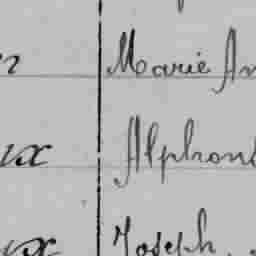 Marie An
ux Alphons
ux Joseph